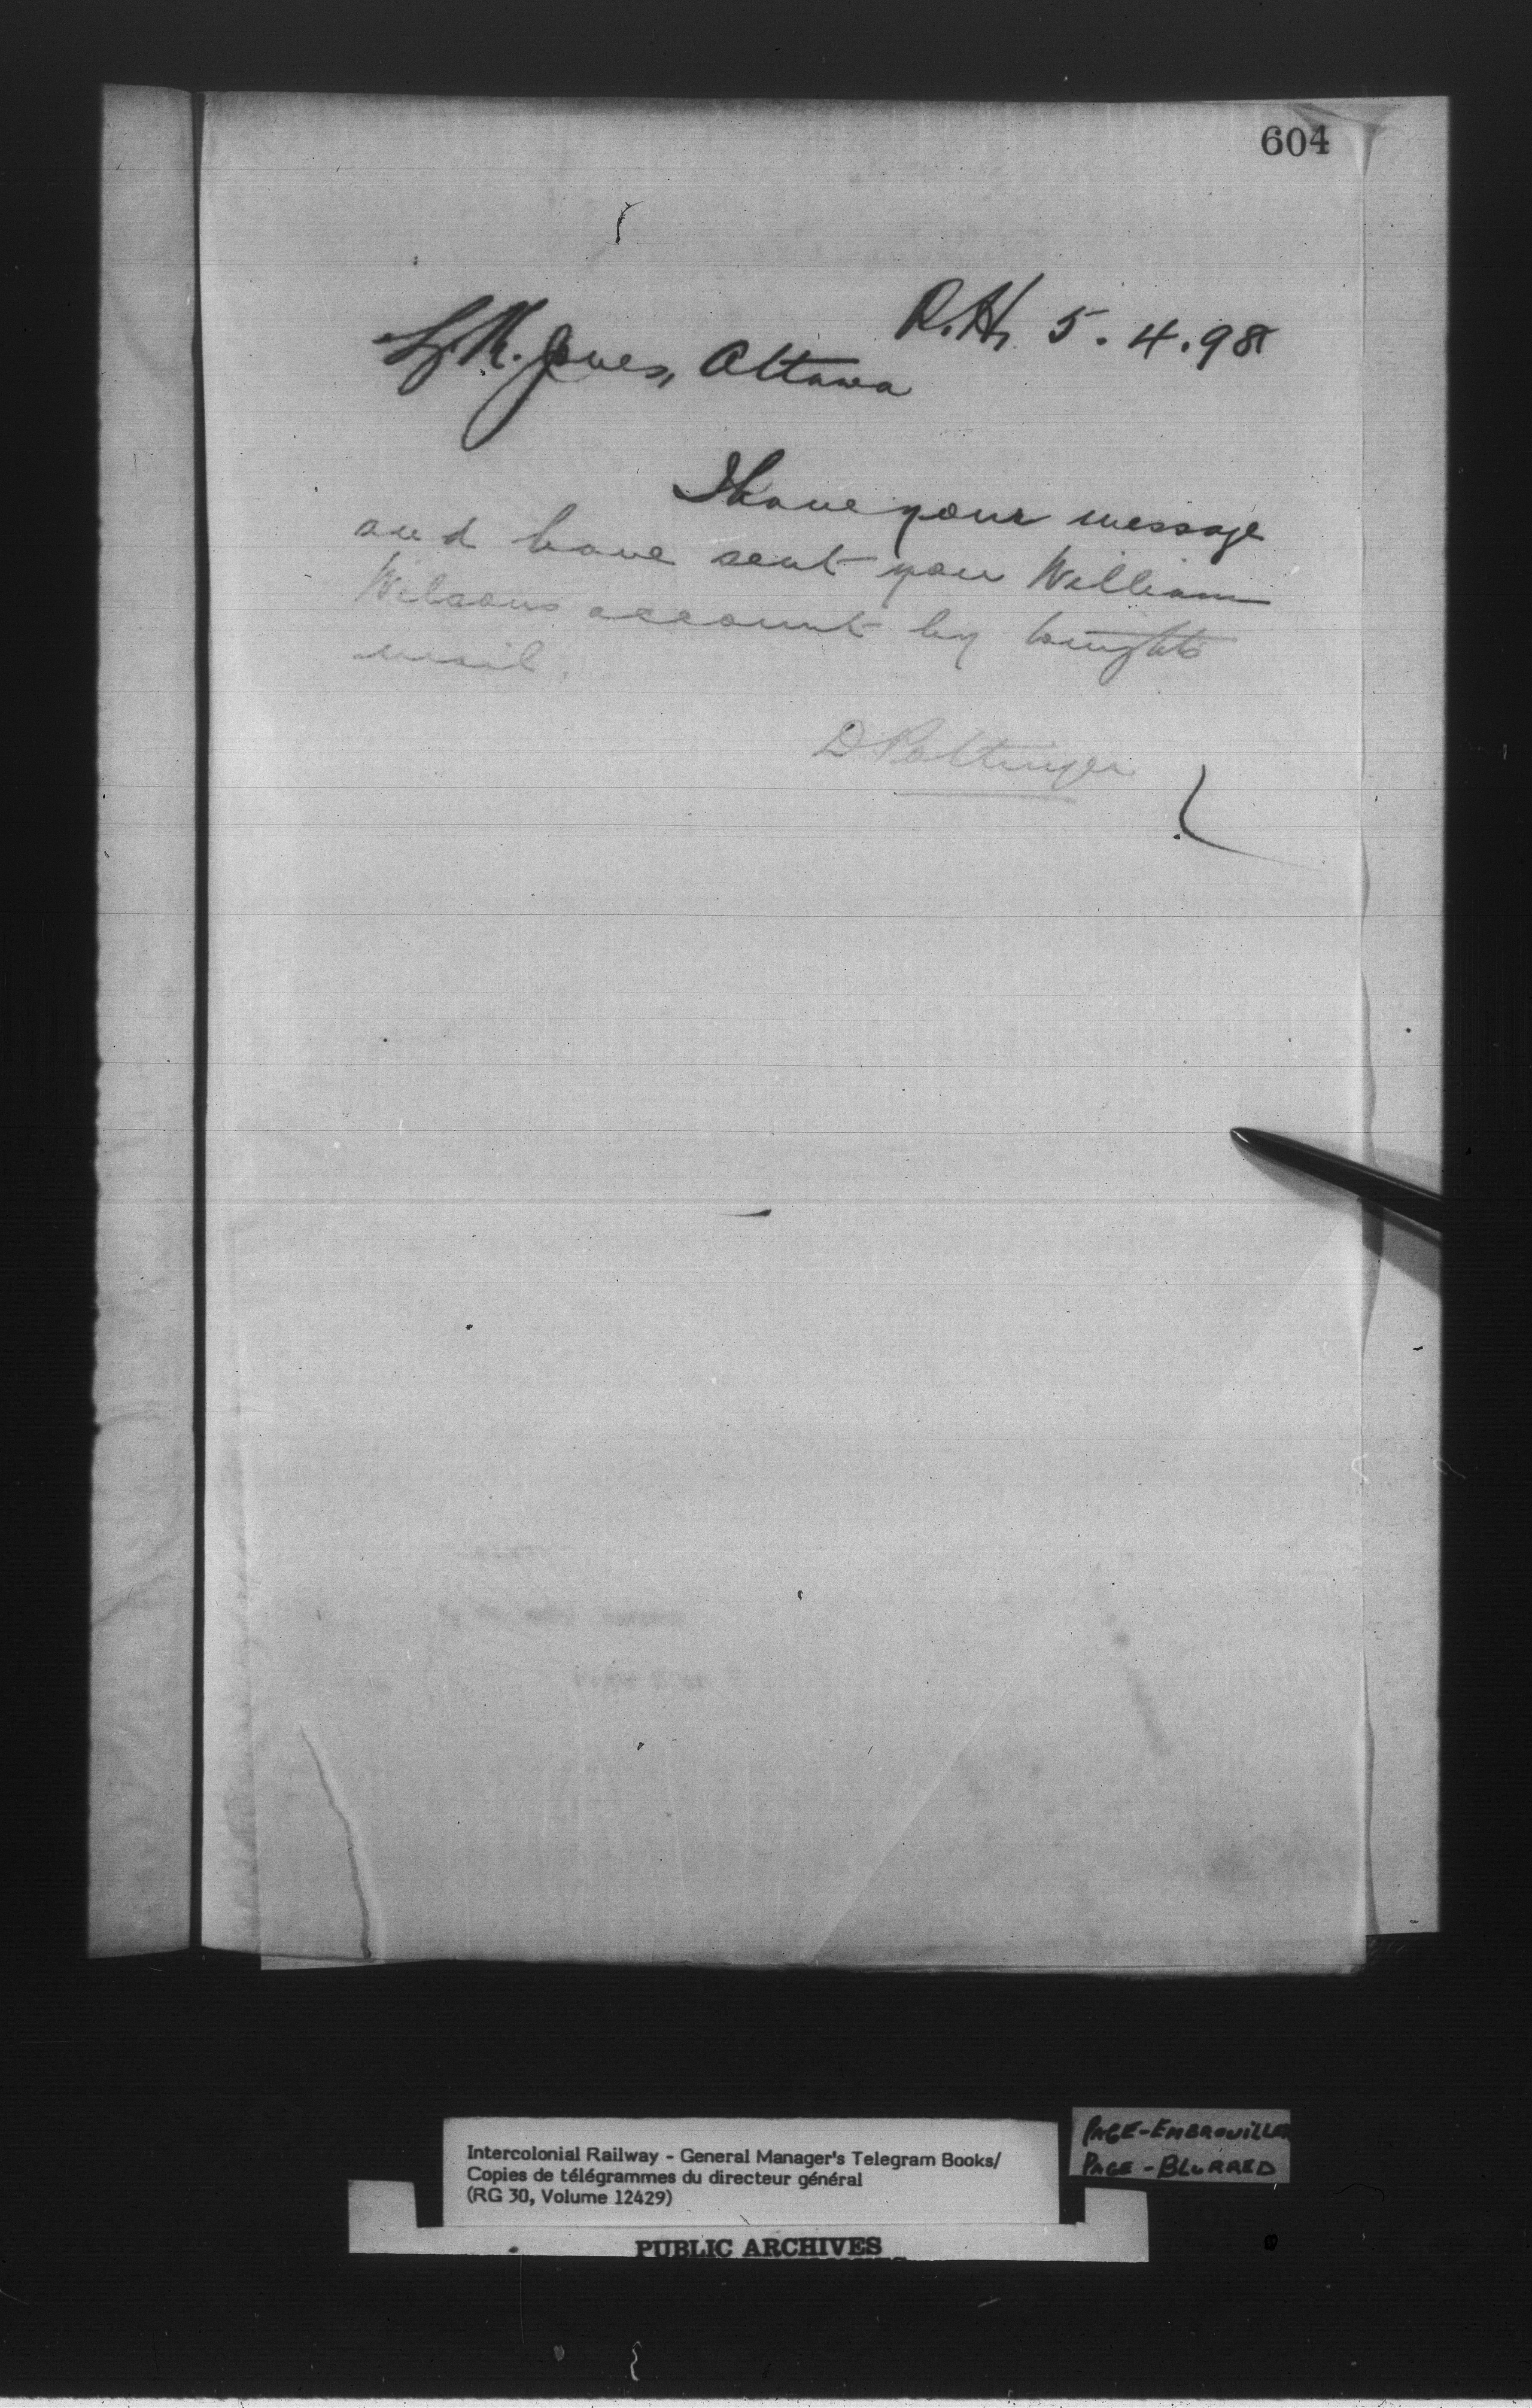 604
R.H. 5.4.98
L.K. Jones, Ottawa
I have your message
and have sent you William
Wilsons account by tonights
mail.
D Pottinger
Intercolonial Railway - General Manager's Telegram Books/
Copies de télégrammes du directeur général
(RG 30, Volume 12429)
PAGE-EMBROUILLEE
PAGE-BLURRED
PUBLIC ARCHIVES